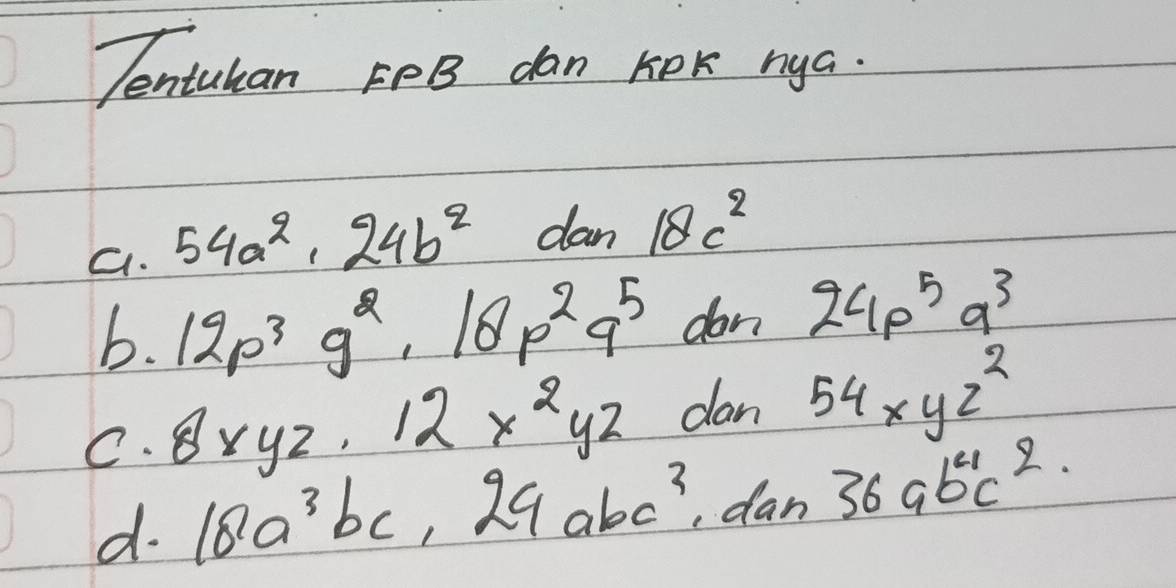 Tentukan FPB dan KPK nya.
a. 54a², 24b² dan 18c²
b. 12p³ q², 18p²q⁵ dan 24p⁵q³
c. 8xyz, 12x²yz dan 54xyz²
d. 18a³bc, 24abc³, dan 36ab⁴c².